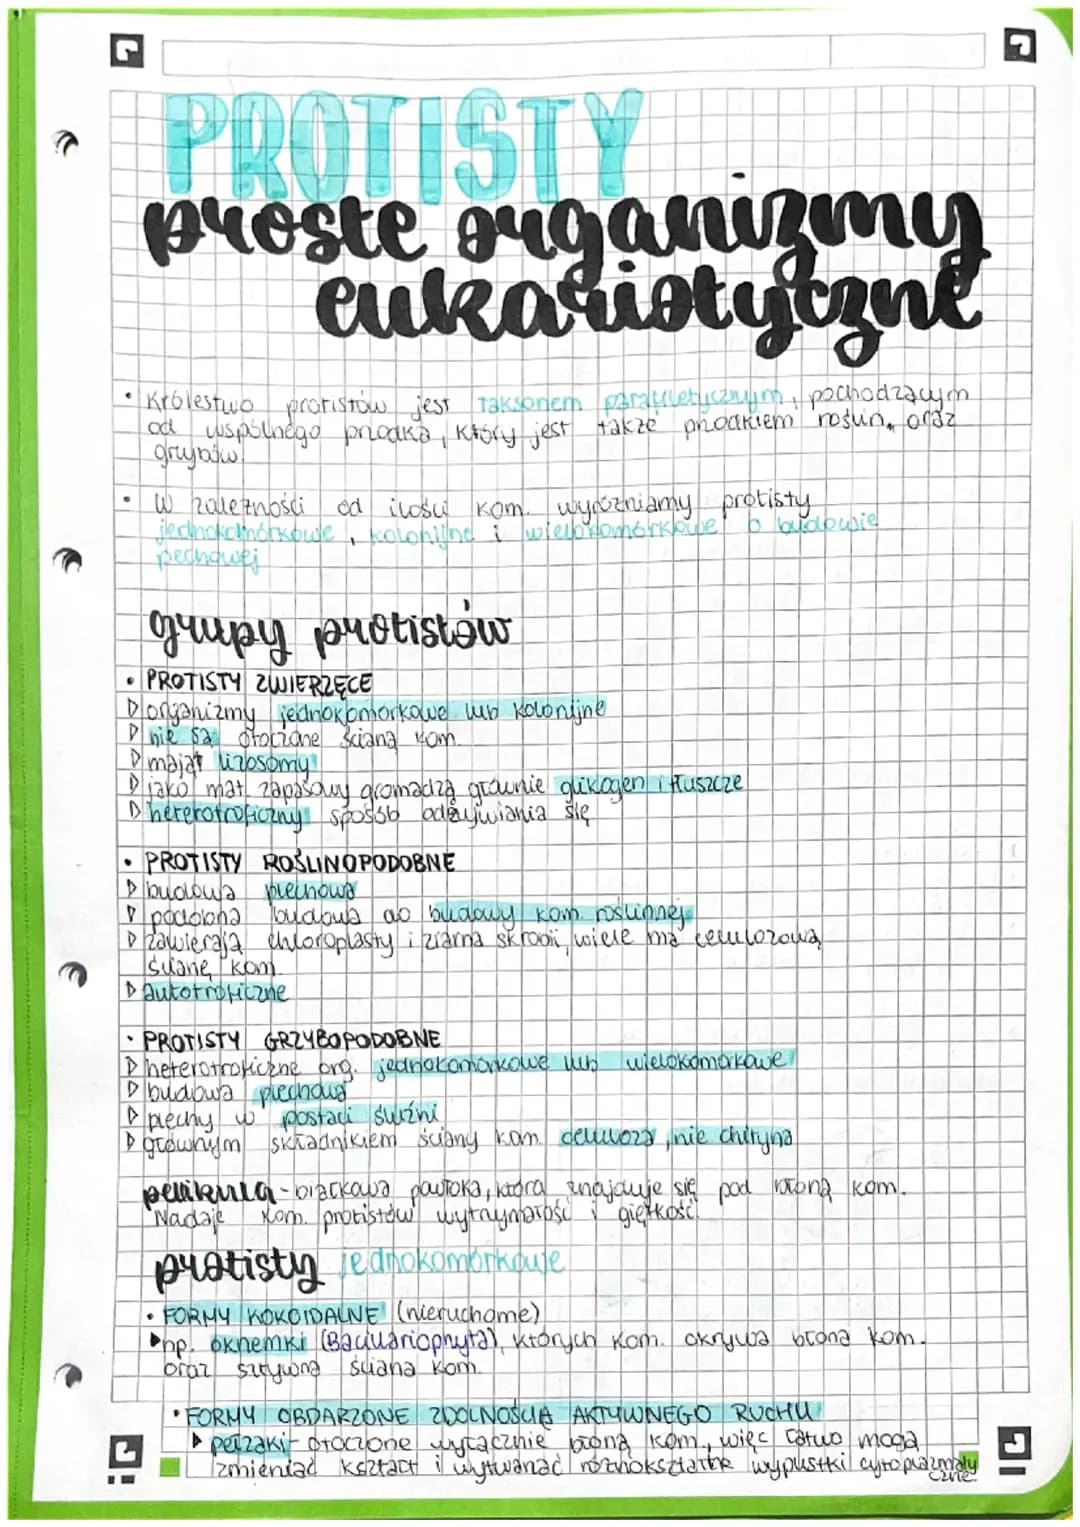 PROTISTY
proste organizmy
eukariotyczne
• Królestwo protistów jest taksonem parafiletycznym, pochodzącym
od wspólnego przodka, który jest także przodkiem roślin, oraz
grzybów.
• W zależności od ilości kom. wyróżniamy protisty
jednokomórkowe, kolonijne i wielokomórkowe o budowie
plechowej
grupy protistów
• PROTISTY ZWIERZĘCE
▷ organizmy jednokomórkowe lub kolonijne
▷ nie są otoczone ścianą kom.
▷ mają lizosomy
▷ jako mat. zapasowy gromadzą głównie glikogen i tłuszcze
▷ heterotroficzny sposób odżywiania się
• PROTISTY ROŚLINOPODOBNE
▷ budowa plechowa
▷ podobna budowa do budowy kom. roślinnej
▷ zawierają chloroplasty i ziarna skrobii, wiele ma celulozową
ścianę kom.
▷ autotroficzne
• PROTISTY GRZYBOPODOBNE
▷ heterotroficzne org. jednokomórkowe lub wielokomórkowe
▷ budowa plechowa
▷ plechy w postaci śluźni
▷ głównym składnikiem ściany kom. celuloza, nie chityna
pelikula - białkowa powłoka, która znajduje się pod błoną kom.
Nadaje kom. protistów wytrzymałość i giętkość.
protisty jednokomórkowe
• FORMY KOKOIDALNE (nieruchome)
▶ np. okrzemki (Bacillariophyta), których kom. okrywa błona kom.
oraz sztywna ściana kom.
• FORMY OBDARZONE ZDOLNOŚCIĄ AKTYWNEGO RUCHU
▶ pełzaki - otoczone wyłącznie błoną kom., więc łatwo mogą
zmieniać kształt i wytwarzać różnokształtne wypustki cytoplazmaty
czne.